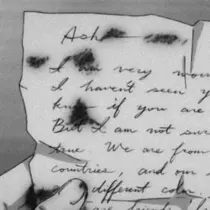 Ash
I am very wor
I haven't seen y
know if you are
But I am not sur
true. We are from
countries, and our s
different color.
are